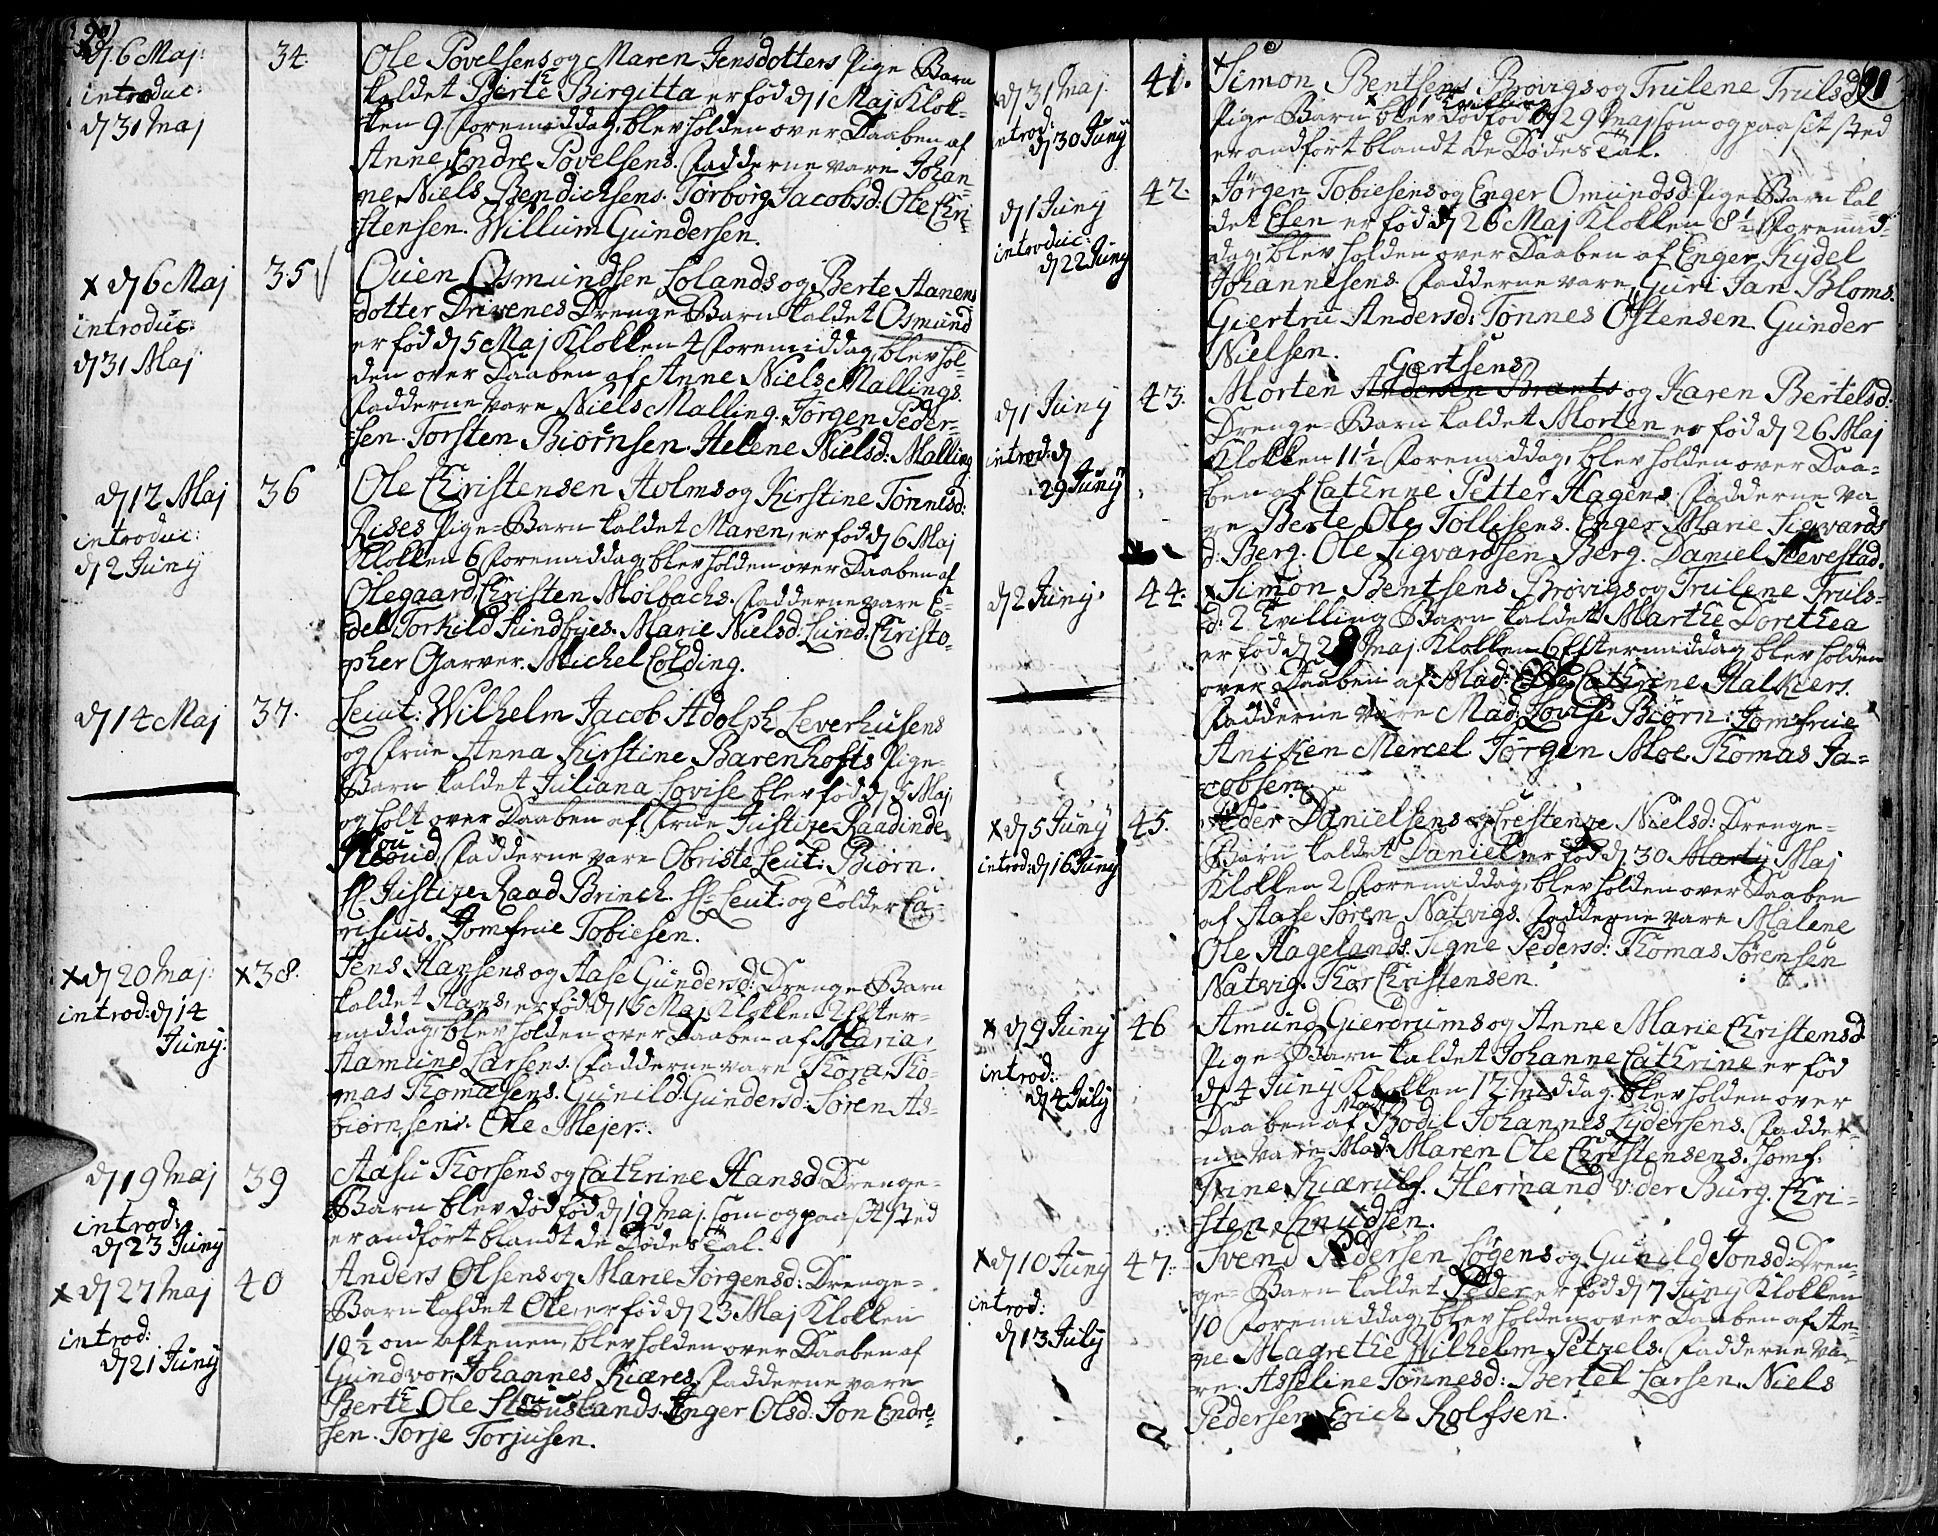 90
d 6 Maj:
introduc:
d 31 Maj
34.
Ole Povelsens og Maren Jensdotters Pige Barn
kaldet Berte Birgitta er fød d 1 Maj Klok-
ken 9 Formiddag, blev holden over Daaben af
Anne Endre Povelsens. Fadderne vare Johan-
ne Niels Bendichsens. Torborg Jacobsd: Ole Chri-
stensen. Willum Gundersen.
x d 6 Maj
introduc:
d 31 Maj
35
Ouen Osmundsen Lolands og Berte Aanens
dotter Drivenes Drenge Barn kaldet Osmund
er fød d 5 Maj Klokken 4 Foremiddag, blev hol-
den over Daaben af Anne Niels Mallings.
Fadderne vare Niels Malling. Jørgen Peder-
sen. Torsten Biørnsen. Helene Nielsd: Malling
d 12 Maj
introduc:
d 2 Juny
36
Ole Christensen Holms og Kirstine Tønnesd:
Rises Pige-Barn kaldet Maren, er fød d 6 Maj
Klokken 6 Foremiddag, blev holden over Daaben af
Olegaard Christen Molbachs. Fadderne vare E-
del Torkild Sundbyes. Marie Nielsd: Lund. Christo-
pher Garver. Michel Colding.
d 14 Maj
37.
Leiut: Wilhelm Jacob Adolph Leverhusens
og Frue Anna Kirstine Barenhofts Pige-
Barn kaldet Juliana Lovise blev fød d 5 Maj
og holt over Daaben af Frue Justize-Raadinde
Fadderne vare Obriste Leut: Biørn.
Hr Justize Raad Brinch. Hr Leut: og Tolder Ca-
risius. Jomfrue Tobiesen.
x d 20 Maj:
introd: d 14
Juny:
x 38.
Jens Hansens og Aase Gundersd: Drenge Barn
kaldet Hans, er fød d 15 Maj Klokken 2 Efter-
middag, blev holden over Daaben af Maria,
Aamund Larsens. Fadderne vare Thora Tho-
mas Thomasens. Gunild Gundersd: Søren As-
biørnsens. Ole Mejer.
d 19 Maj
introd:
d 23 Juny
39
Aasu Thorsens og Cathrine Hansd: Drenge-
Barn blev død fød d 19 Maj. som og paa sit sted
er andført blandt de Dødes Tal.
x d 27 Maj
introd:
d 21 Juny
40
Anders Olsens og Marie Jørgensd: Drenge-
Barn kaldet Ole, er fød d 23 Maj Klokken
10 ½ om aftenen, blev holden over Daaben af
Gundvor Johannes Kiæres, Fadderne vare
Berte Ole Inger Olsd. Jon Endre-
sen. Torje Torjusen.
91
x d 31 Maj
introd:
d 30 Juny
41.
x Simon Bentsens Brøvigs og Trulene Trulsd:
Tvilling
Pige Barn blev død fød d 29 Maj som og paa sit sted
er andført blandt de Dødes Tal.
d 1 Juny
introduc:
d 22 Juny
42.
Jørgen Tobiesens og Enger Omundsd: Pige Barn kal-
det Elen er fød d 26 Maj Klokken 8 ½ Foremid-
dag, blev holden over Daaben af Enger Kydel
Johannesens. Fadderne vare Guri Jan Bloms.
Giertru Andersd: Tønnes Østensen. Gunder
Nielsen.
d 1 Juny
introd: d
29 Juny
43.
Gertsens
Morten Andersen Brants og Karen Bertelsd:
Drenge-Barn kaldet Morten er fød d 26 Maj
Klokken 11 ½ Foremiddag, blev holden over Daa-
ben af Cathrine Petter Hagens. Fadderne va-
re Berte Ole Tollisens. Enger Marie Sigvards
d: Berg. Ole Sigvardsen Berg. Daniel Stevestad.
d 2 Juny.
44.
x Simon Bentsens Brøvigs og Trulene Truls-
d: 2 Tvilling Barn kaldet Marthe Dorethea
er fød d 29 Maj Klokken 6 Eftermiddag blev holden
over Daaben af Mad: Cathrine Halkiers.
Fadderne vare Mad: Lovise Biørn: Jomfrue
Aniken Mercel Jørgen Moe. Thomas Ja-
cobsen.
x d 5 Juny
introd: d 16 Juny
45.
Peder Danielsens og Crestenze Nielsd: Drenge-
Barn kaldet Daniel er fød d 30 Marty Maj
Klokken 2 Foremiddag, blev holden over Daaben
af Aase Søren Natvigs. Fadderne vare Malene
Ole Hagelands. Signe Pedersd: Thomas Sørensen
Natvig. Thor Christensen.
x d 9 Juny
introd:
d 4 July
46
Amund Gierdrums og Anne Marie Christensd
Pige-Barn kaldet Johanne Cathrine er fød
d 4 Juny Klokken 12 Middag, blev holden over
Mad:
Daaben af Bodil Johannes Lydersens. Fadder-
ne vare Mad: Maren Ole Christensens. Jomf:
Trine Kiærulf. Hermand v: der Burg. Chri-
sten Knudsen.
x d 10 Juny
introd:
d 13 July
47.
Svend Pedersen Søgens og Gunild Jonsd: Dren-
ge-Barn kaldet Peder er fød d 7 Juny Klokken
10 Foremiddag, blev holden over Daaben af An-
ne Magrethe Wilhelm Petzels. Fadderne va-
re. Asseline Tønnesd: Bertel Larsen. Niels
Pedersen Erich Rolfsen.